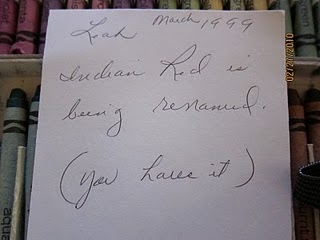 Leah March, 1999
Indian Red is
being renamed.
(you have it)
02/20/2010
aqua